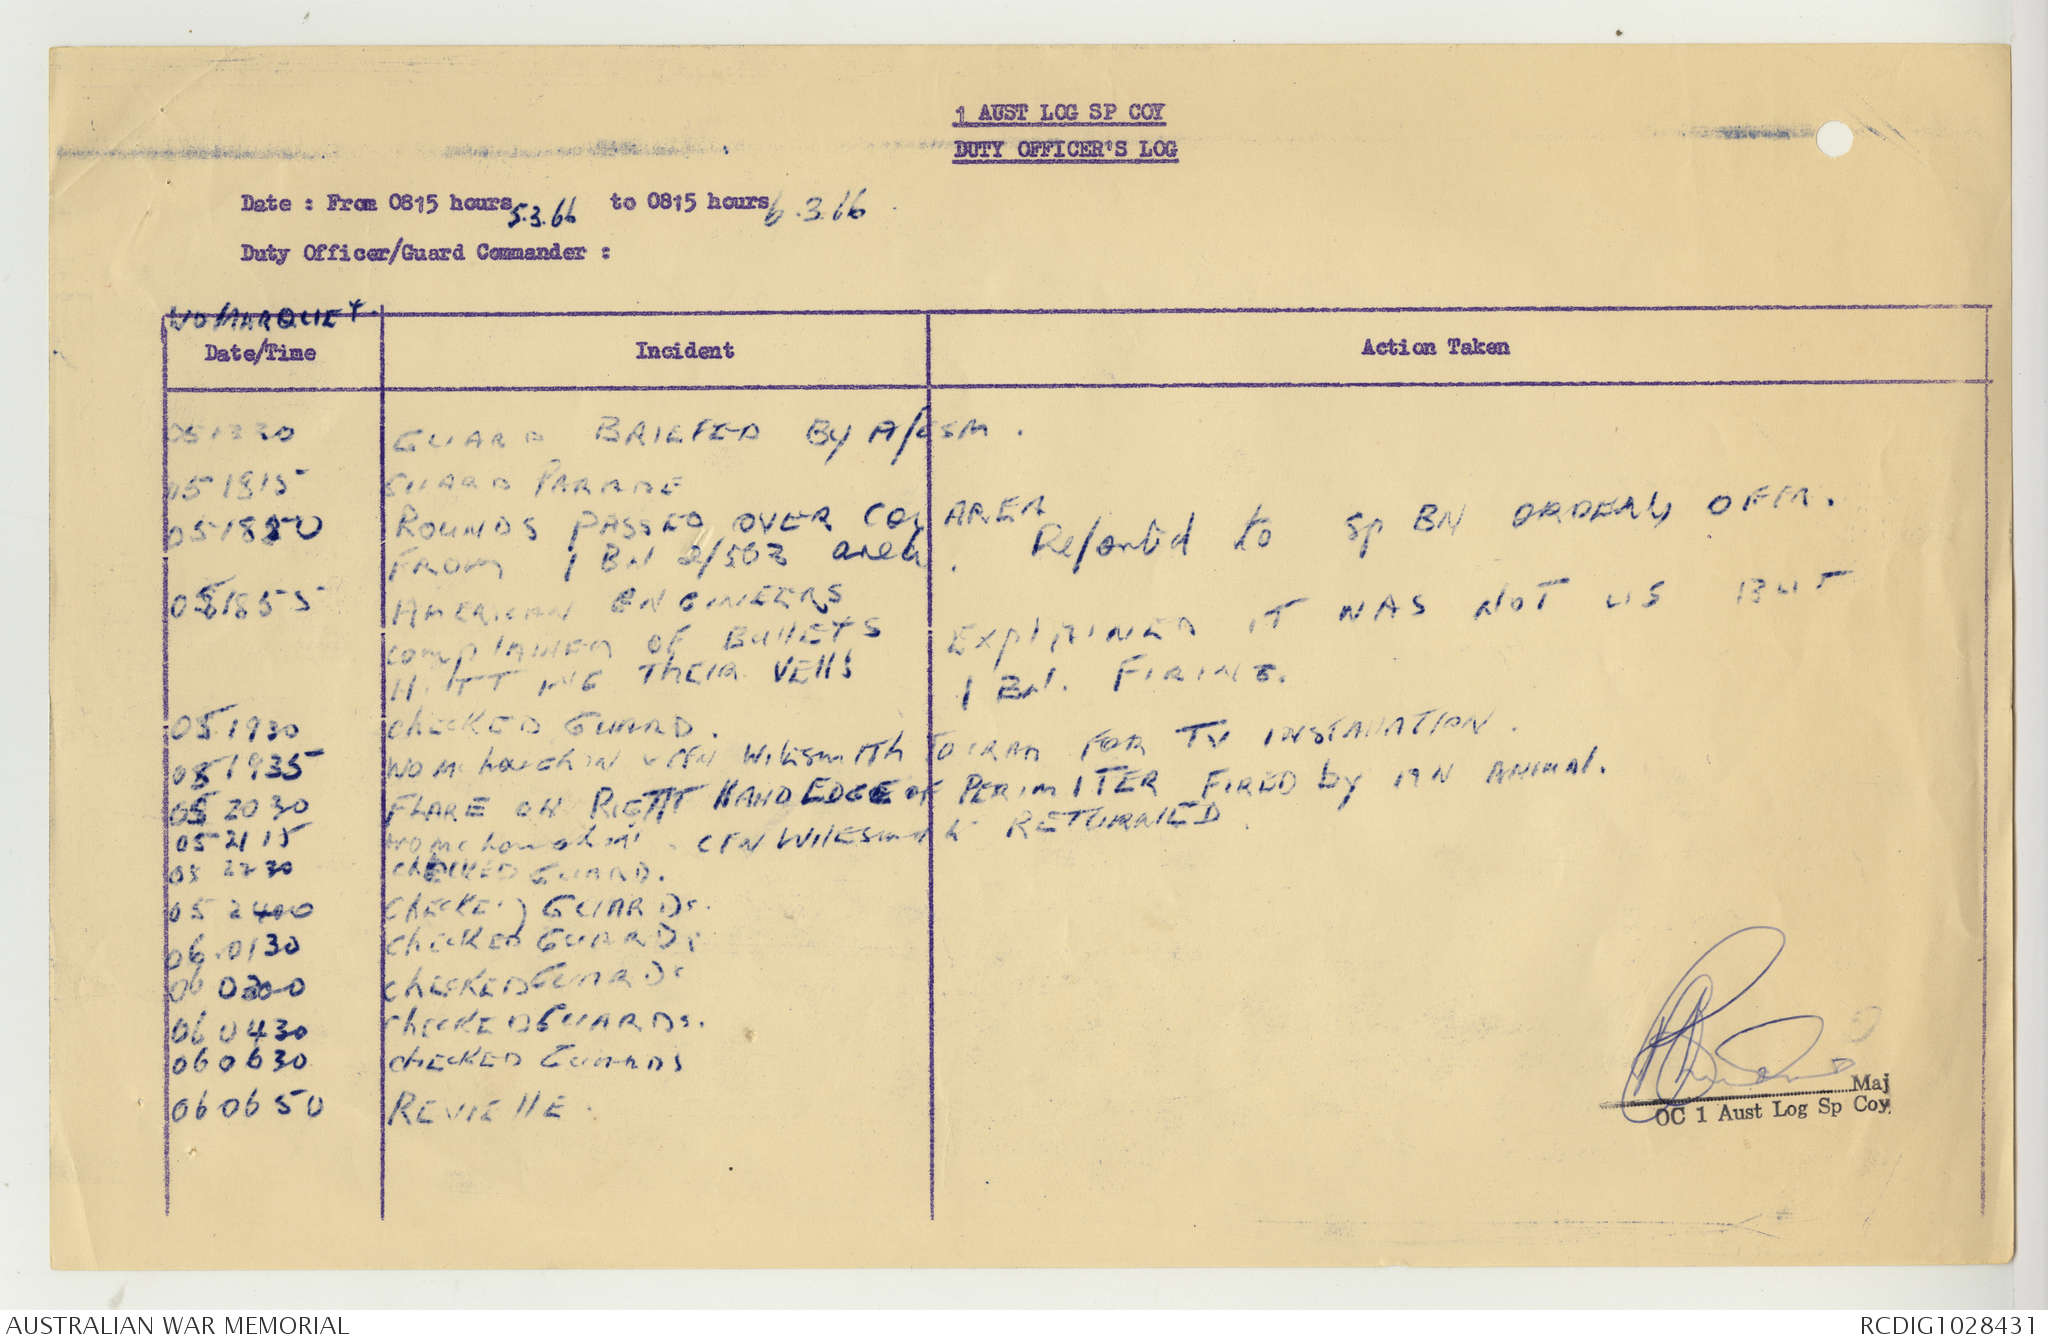 1 AUST LOG SP COY
DUTY OFFICER'S LOG
Date : From 0815 hours 5.3.66 to 0815 hours 6.3.66
Duty Officer/Guard Commander :
WO MARQUET.
Date/Time Incident Action Taken
051330 GUARD BRIEFED By A/CSM.
051815 GUARD PARADE
051850 ROUNDS PASSED OVER COY AREA Reported to Sp BN ORDERLY OFFR.
FROM 1 BN 2/503 area.
051855 AMERICAN ENGINEERS
COMPLAINED OF BULLETS EXPLAINED IT WAS NOT US BUT
HITTING THEIR VEHS 1 BN. FIRING.
051930 CHECKED GUARD.
051935 WO CFN WILESMITH FOR TV INSTALLATION.
052030 FLARE ON RIGHT HAND EDGE OF PERIMITER FIRED by AN ANIMAL.
052115 WO CFN WILESMITH RETURNED.
052230 CHECKED GUARD.
052400 CHECKED GUARDS.
060130 CHECKED GUARDS
060300 CHECKED GUARDS
060430 CHECKED GUARDS.
060630 CHECKED GUARDS
060650 REVIELLE.
Maj
OC 1 Aust Log Sp Coy
AUSTRALIAN WAR MEMORIAL RCDIG1028431